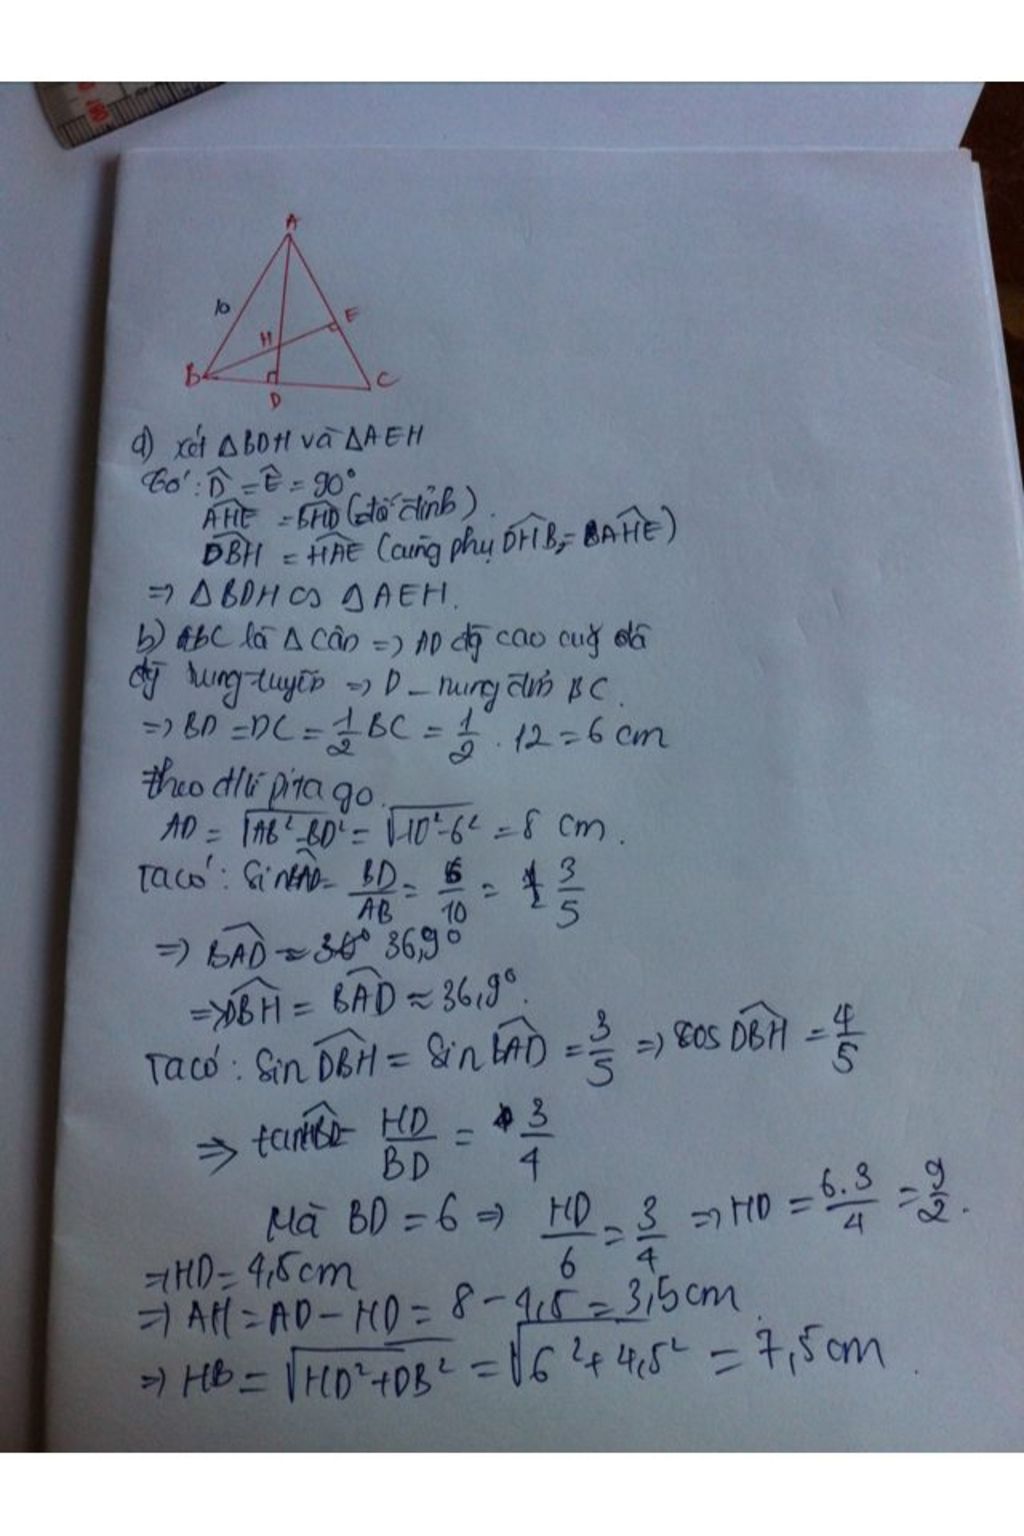 A
10
E
H
B
C
D
a) xét ΔBDH và ΔAEH
Có: D̂ = Ê = 90°
AHE = BHD (đối đỉnh).
DBH = HAE (cùng phụ DHB = AHE)
=> ΔBDH ∽ ΔAEH.
b) ABC là Δ cân => AD đg cao cũg là
đg trung tuyến => D _ trung điểm BC.
=> BD = DC = 1/2 BC = 1/2 . 12 = 6 cm
theo đ/lí pita go.
AD = √AB² - BD² = √10² - 6² = 8 cm.
Ta có: Sin BAD = BD/AB = 6/10 = 3/5
=> BAD ≈ 36,9°
=> DBH = BAD ≈ 36,9°.
Ta có: Sin DBH = Sin BAD = 3/5 => cos DBH = 4/5
=> tan HBD = HD/BD = 3/4
Mà BD = 6 => HD/6 = 3/4 => HD = 6.3/4 = 9/2.
=> HD = 4,5 cm
=> AH = AD - HD = 8 - 4,5 = 3,5 cm.
=> HB = √HD² + DB² = √6² + 4,5² = 7,5 cm.